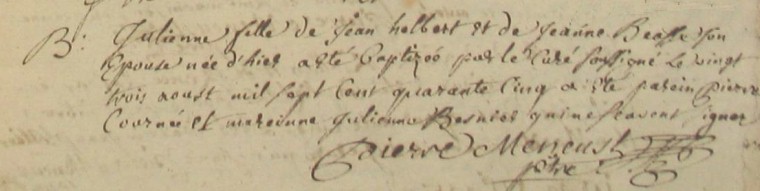 B: Julienne fille de Jean helbert et de Jeanne Beasse son
Epouse née d'hier a eté baptizéé par le Curé soussigné le vingt
trois aoust mil sept Cent quarante Cinq a eté parein pierre
Cournée et mareinne Julienne Besnier qui ne scavent signer
pierre Meneust
ptre